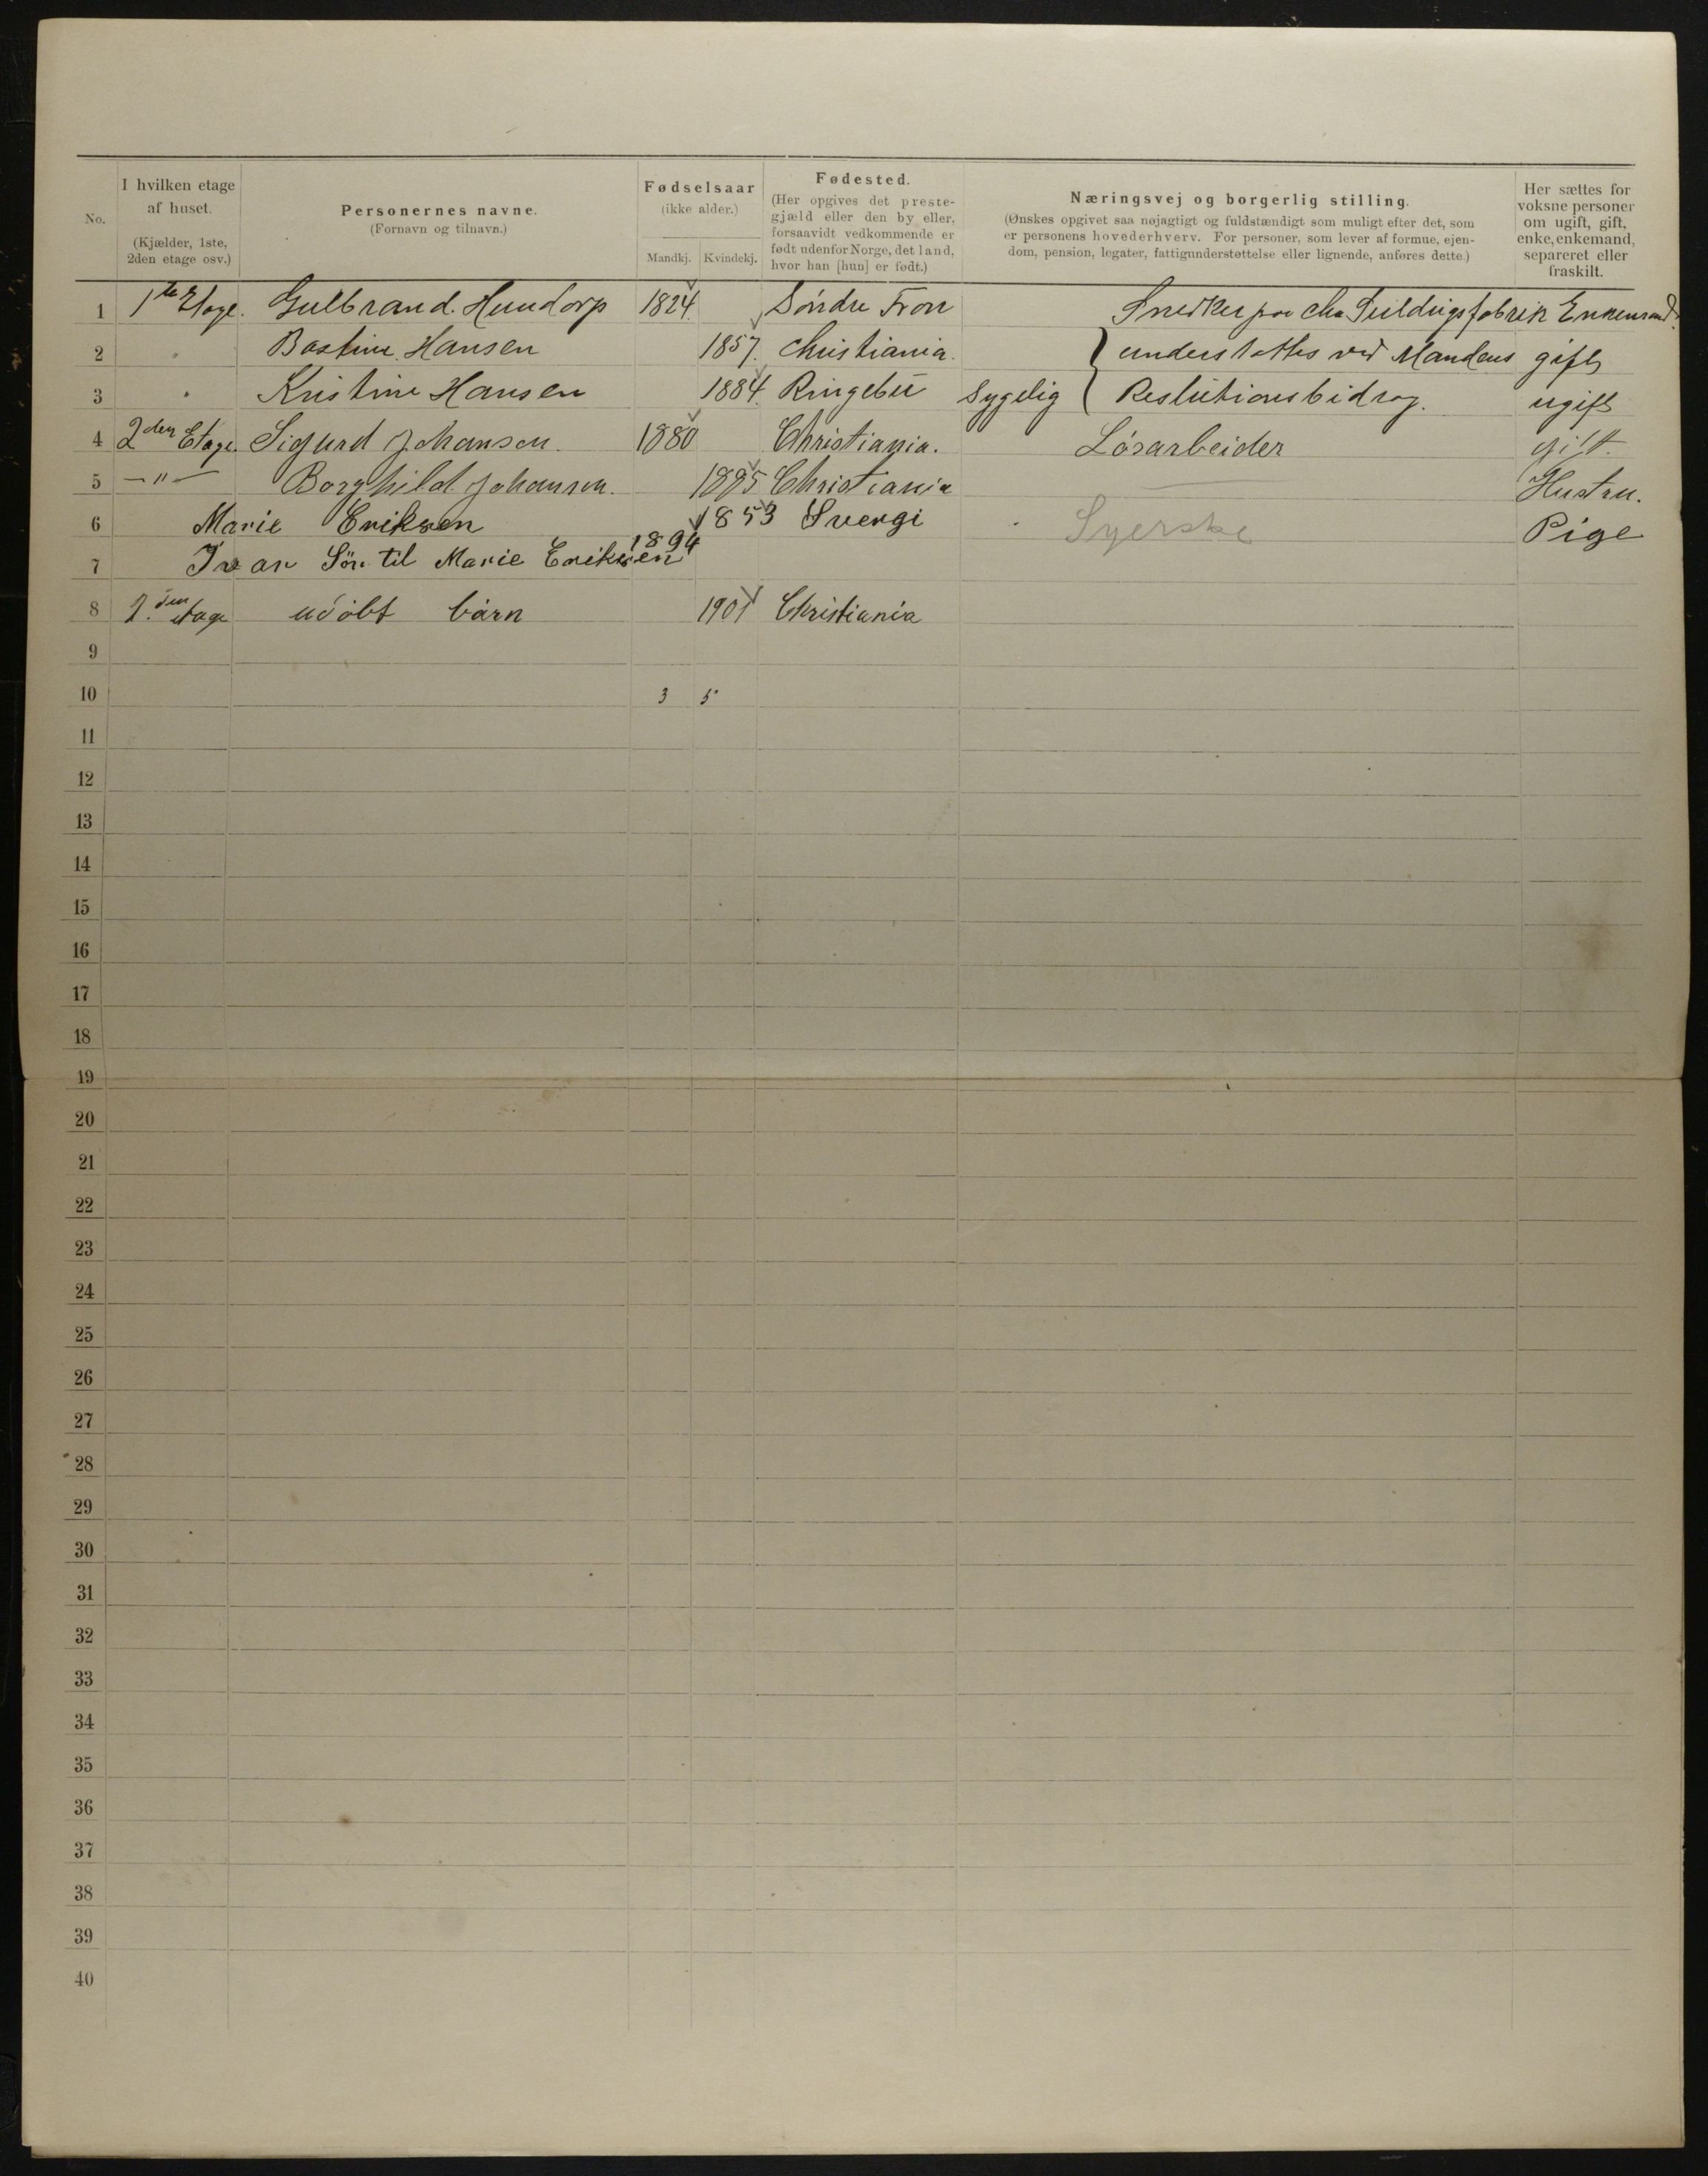 No.
I hvilken etage
af huset.
(Kjælder, 1ste,
2den etage osv.)
Personernes navne.
(Fornavn og tilnavn.)
Fødselsaar
(ikke alder.)
Mandkj. Kvindekj.
Fødested.
(Her opgives det preste-
gjæld eller den by eller,
forsaavidt vedkommende er
født udenfor Norge, det land,
hvor han [hun] er født.)
Næringsvej og borgerlig stilling.
(Ønskes opgivet saa nøjagtigt og fuldstændigt som muligt efter det, som
er personens hovederhverv. For personer, som lever af formue, ejen-
dom, pension, legater, fattigunderstøttelse eller lignende, anføres dette.)
Her sættes for
voksne personer
om ugift, gift,
enke, enkemand,
separeret eller
fraskilt.
1 1ste Etage. Gulbrand Hundorp 1824 Søndre Fron Snedker paa Enkemand.
2 " Bastine Hansen 1857. Christiania. understøttes ved Mandens gift
3 " Kristine Hansen 1884. Ringebu Sygelig bidrag. ugift
4 2den Etage. Sigurd Johansen. 1880 Christiania. Løsarbeider gift.
5 —"— Borghild Johansen. 1885 Christiania Hustru.
6 Marie Eriksen 1853 Svergi Syerske Pige
7 Ivar Sön til Marie Eriksen 1894
8 2.den etage udøbt barn 1901 Christiania
9
10 3 5
11
12
13
14
15
16
17
18
19
20
21
22
23
24
25
26
27
28
29
30
31
32
33
34
35
36
37
38
39
40